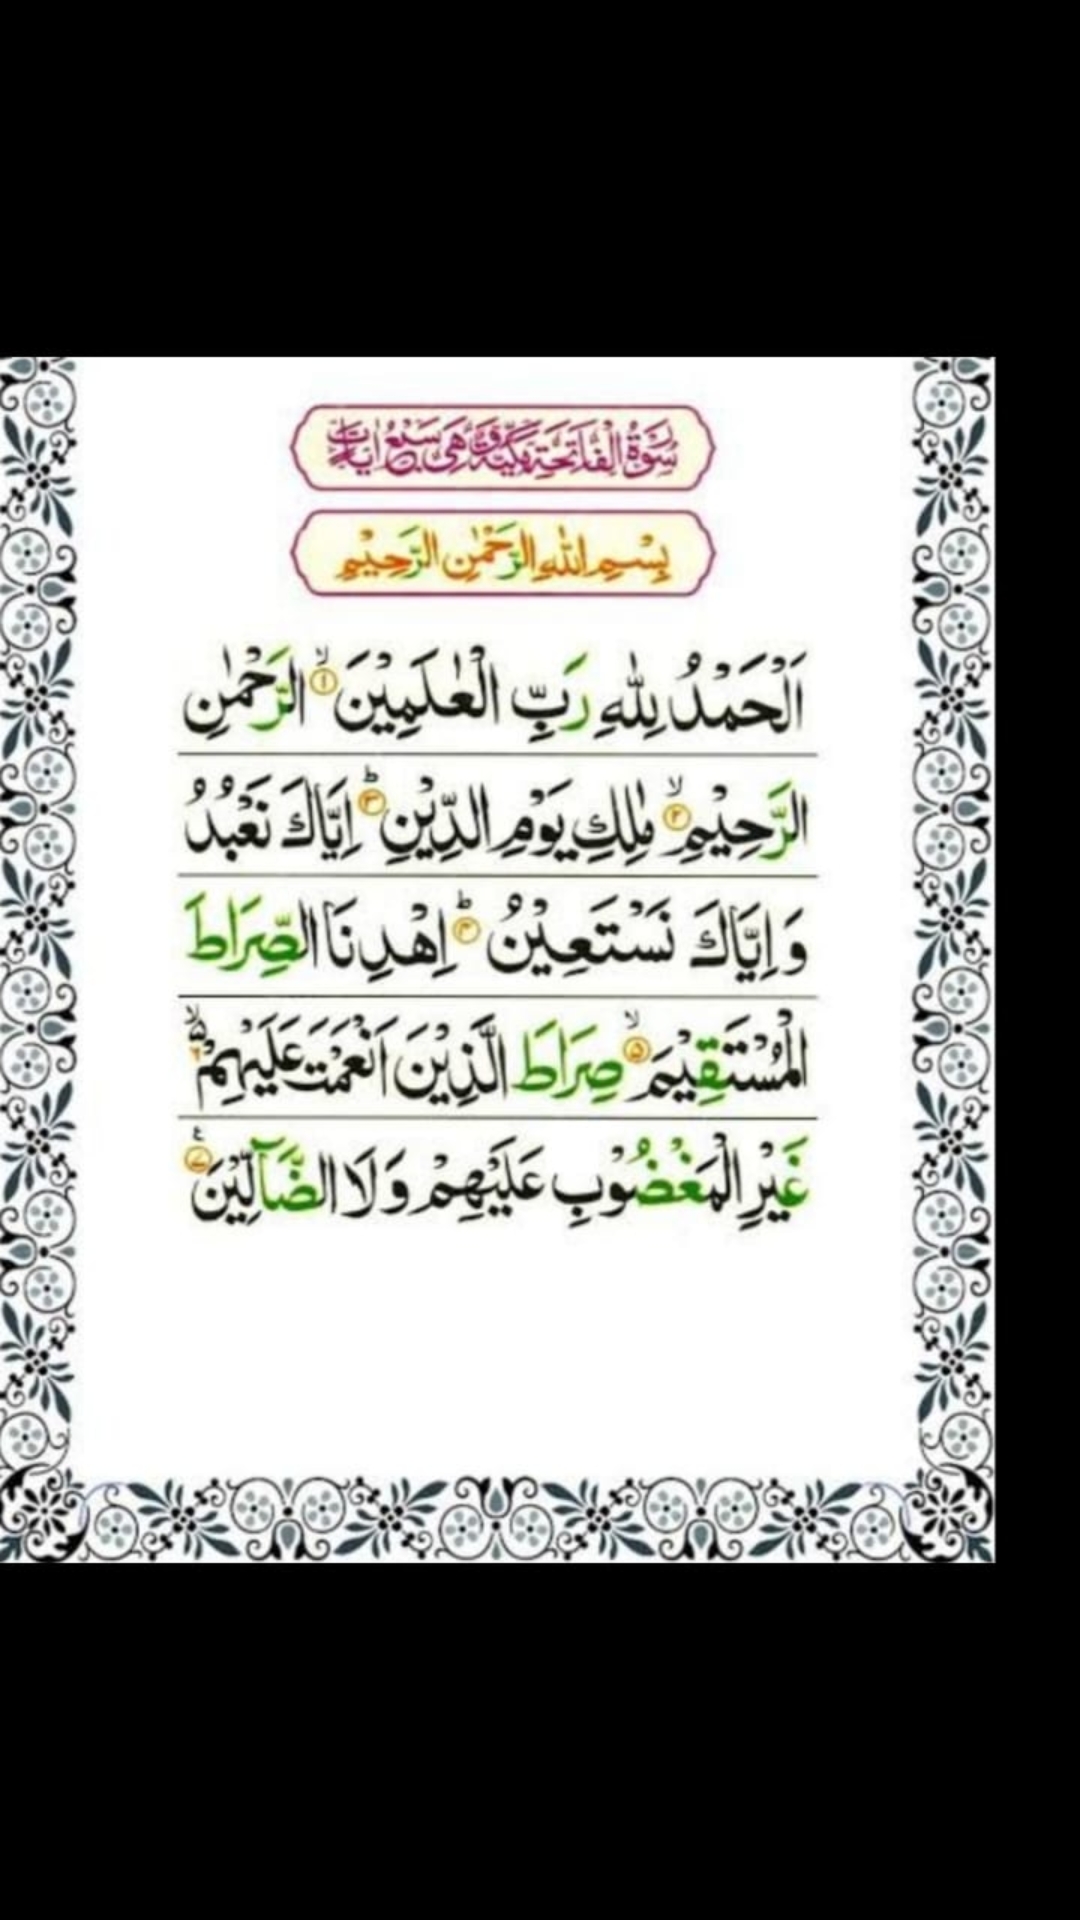 سُوْرَةُ الْفَاتِحَةِ مَكِّيَّةٌ وَّهِیَ سَبْعُ اٰیَاتٍ
بِسْمِ اللهِ الرَّحْمٰنِ الرَّحِیْمِ
اَلْحَمْدُ لِلّٰهِ رَبِّ الْعٰلَمِیْنَ ۙ﴿۱﴾ الرَّحْمٰنِ
الرَّحِیْمِ ۙ﴿۲﴾ مٰلِكِ یَوْمِ الدِّیْنِ ؕ﴿۳﴾ اِیَّاكَ نَعْبُدُ
وَ اِیَّاكَ نَسْتَعِیْنُ ؕ﴿۴﴾ اِهْدِنَا الصِّرَاطَ
الْمُسْتَقِیْمَ ۙ﴿۵﴾ صِرَاطَ الَّذِیْنَ اَنْعَمْتَ عَلَیْهِمْ ۙ۬﴿۶﴾
غَیْرِ الْمَغْضُوْبِ عَلَیْهِمْ وَ لَا الضَّآلِّیْنَ ﴿۷﴾ ع